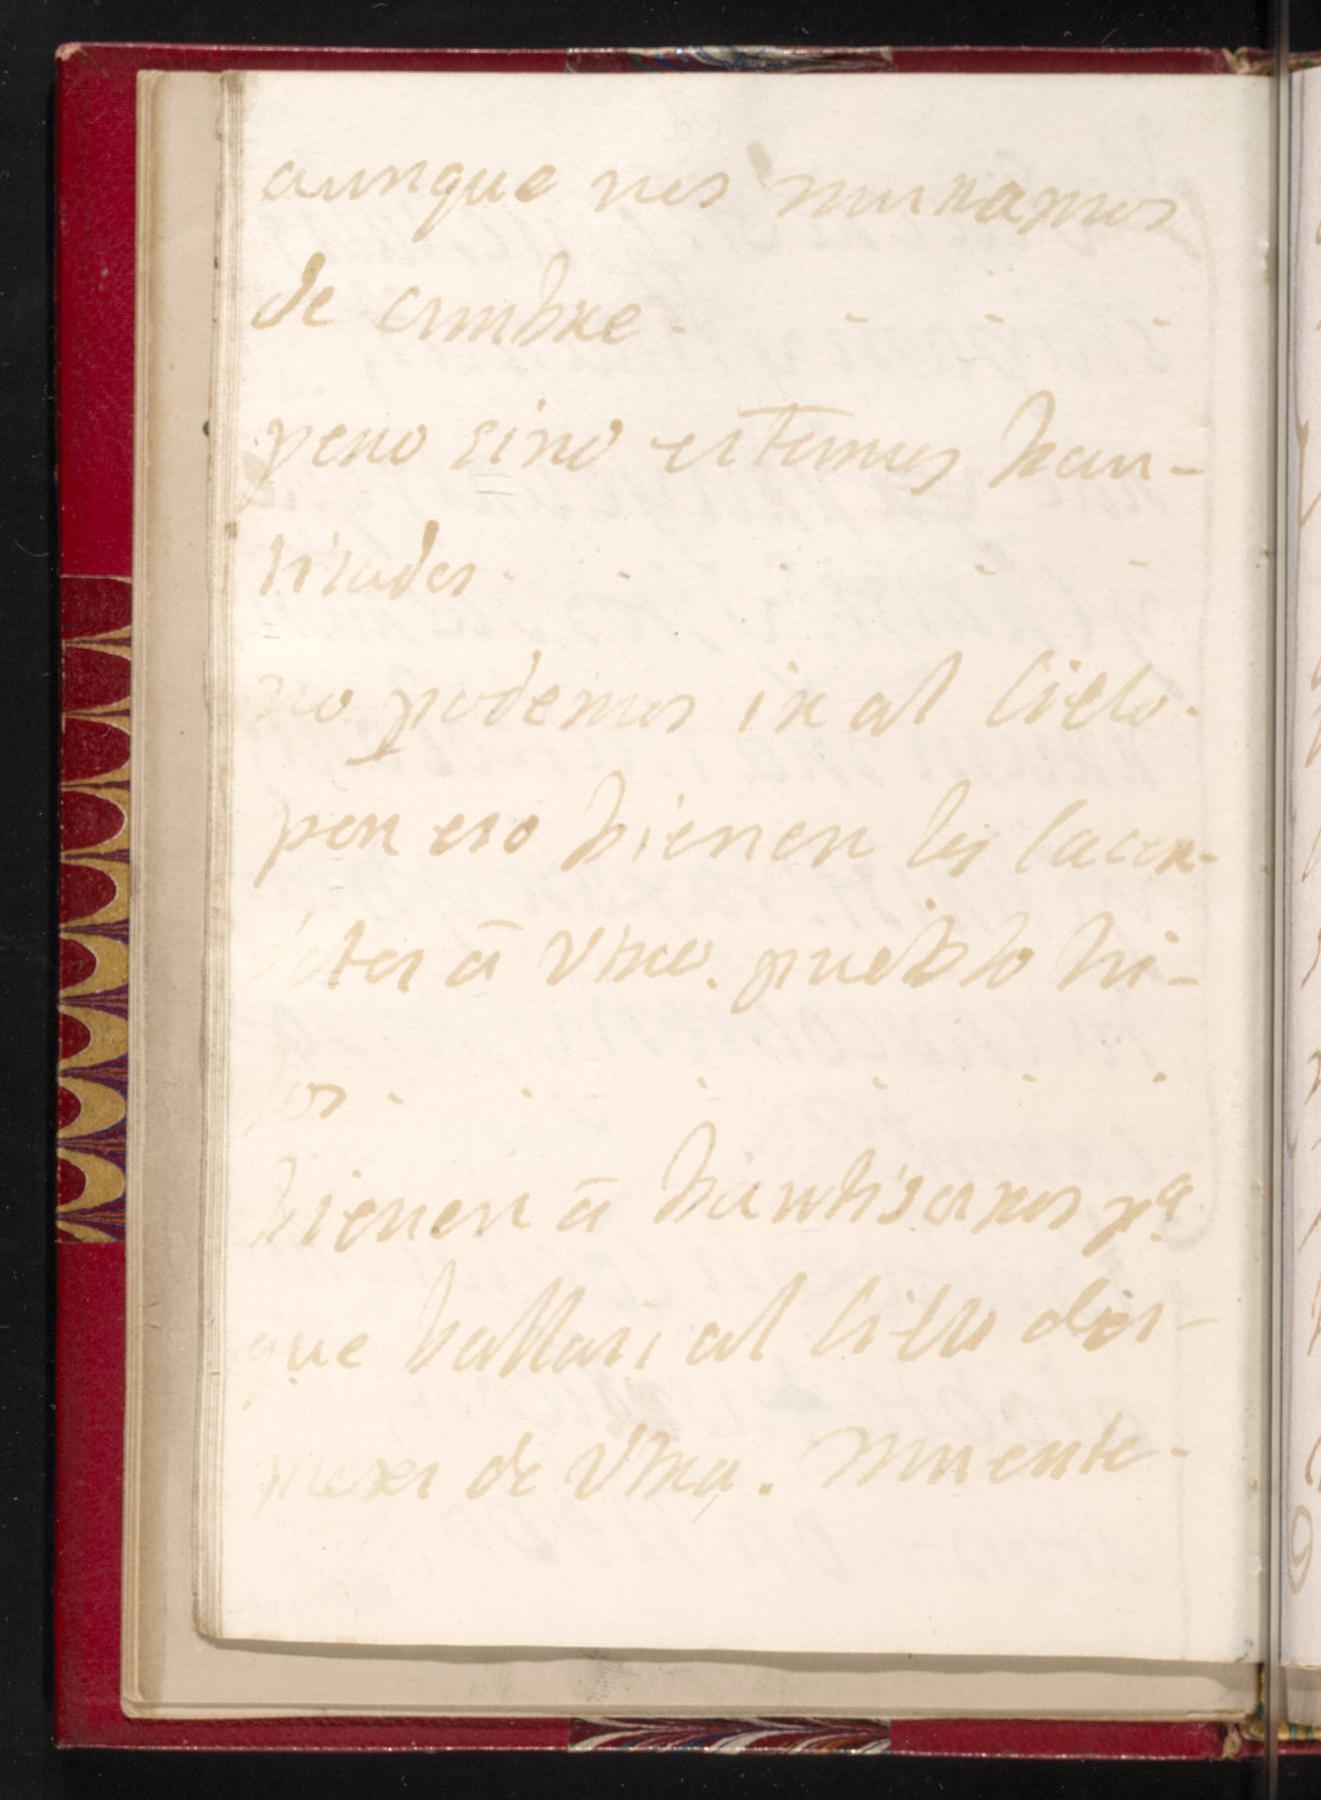 aunque nos murramos
de ambre.
pero sino estamos bau-
tisados.
no podemos ir al Cielo.
por eso bienen los Cacer-
dotes â Vtro. pueblo hi-
jos.
bienen â bautisarnos pª
que ballais al Cielo des-
pues de Vtra. muerte-